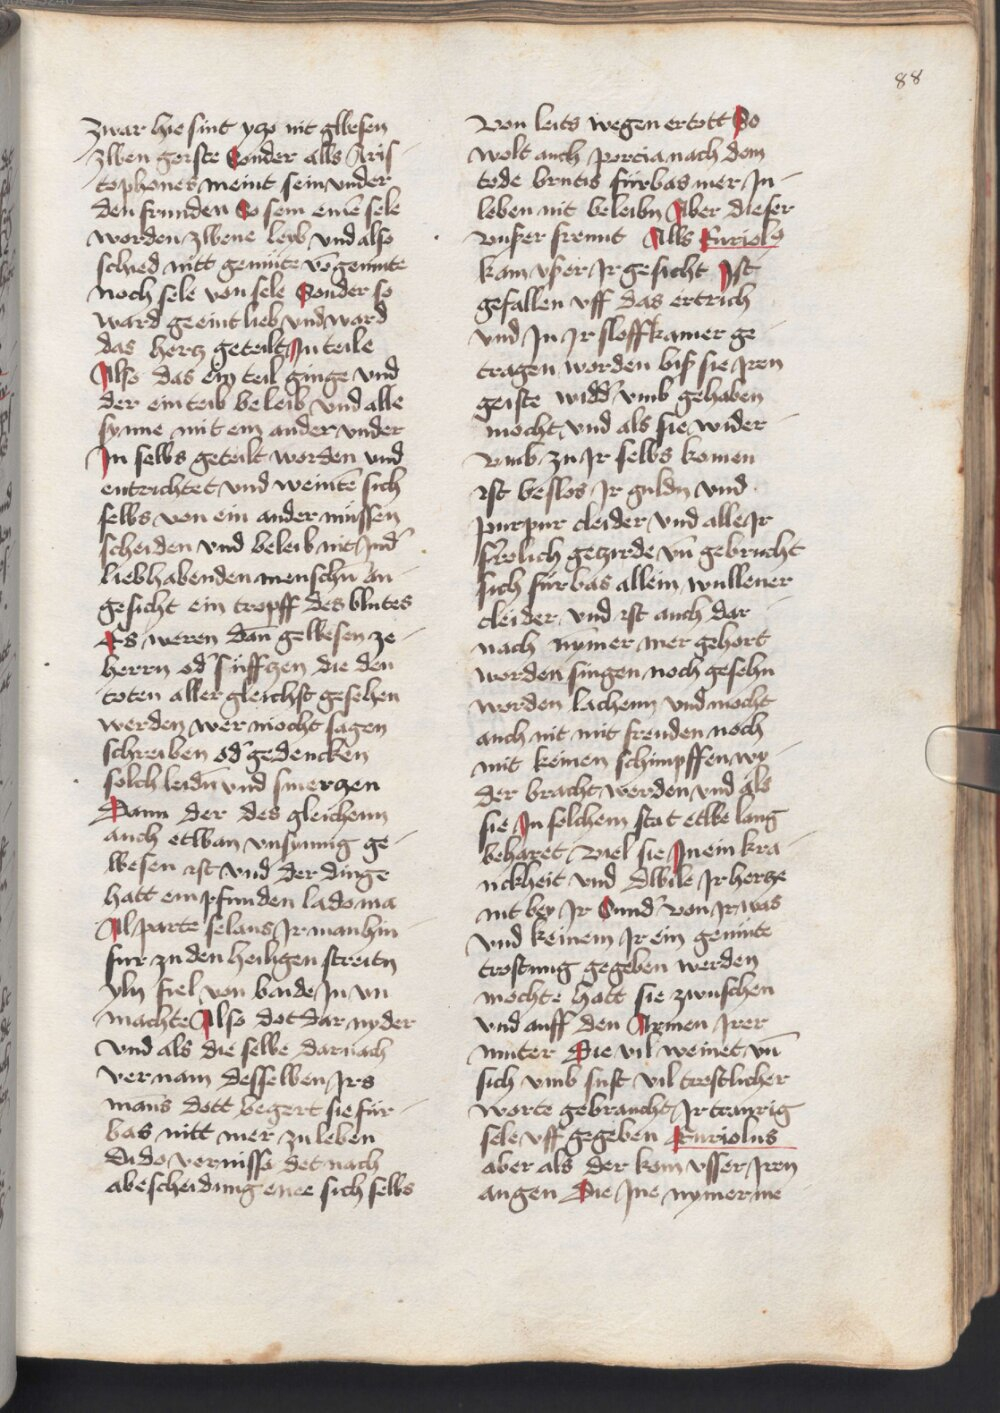 88
zwar hie sint yczo nit gwesen
zwen geiste Sonder alls Aris
tophones meint sein vnder
den frunden So sein eine sele
worden zwene leyb vnd also
schied nitt gemüte vo gemüte
noch sele von sele Sonder so
ward geeint lieb vnd ward
das hertz geteilt In teile
Also das ein teil ginge vnd
der ein teib beleib vnd alle
synne mit ein ander vnder
In selbs geteilt worden vnd
entrichtet vnd weinte sich
selbs von ein ander müssen
scheiden vnd beleib nit Ind
liebhabenden menschn An
gesicht ein tropff des blutes
Es weren dan gewesen ze
herrn od süfftzen die den
toten aller gleichst gesehen
werden wer mocht sagen
schreiben od gedencken
solch leidn vnd smerczen
Dann der des gleichenn
auch etwan vnsynnig ge
wesen ist vnd der dinge
hatt empfunden ladoma
Al parte selans Ir man hin
fur zu den heiligen streitn
yln fiel von baide In vn
machte Also dot dar nyder
vnd als die selbe darnach
vernam desselben Irs
mans dott begert sie für
bas nitt mer zu leben
Dido vernisso det nach
abescheidung enee sich selbs
von leits wegen ertott So
wolt auch porcia nach dem
tode brutis fürbas mer In
leben nit beleibn Aber dieser
vnser freunt Alls Euriol9
kam vsser Ir gesicht Ist
gefallen vff das ertrich
vnd In Ir sloffkamer ge
tragen worden biss sie Iren
geiste widd vmb gehaben
mocht vnd als sie wider
vmb zu Ir selbs komen
ist beslos Ir guldn vnd
purpur cleider vnd alle Ir
frolich geczirde vn gebrucht
sich fürbas allein wullener
cleider vnd ist auch dar
nach nymer mer gehort
worden singen noch gesehn
worden lachenn vnd mocht
auch nit mit freuden noch
mit keinen schimpffen wy
der bracht werden vnd als
sie In solchem stat etwe lang
beharet viel sie In ein kra
nckheit vnd Dwile Ir hercze
nit bey Ir Sund von Ir was
vnd keinem Ir ein gemüte
trostung gegeben werden
mochte hatt sie zwuschen
vnd auff den Armen Irer
muter Die vil weinet vn
sich vmb sust vil trostlicher
worte gebraucht Ir traurig
sele vff gegeben Euriolus
aber als der kom vsser Iren
augen Die Ine nymerme